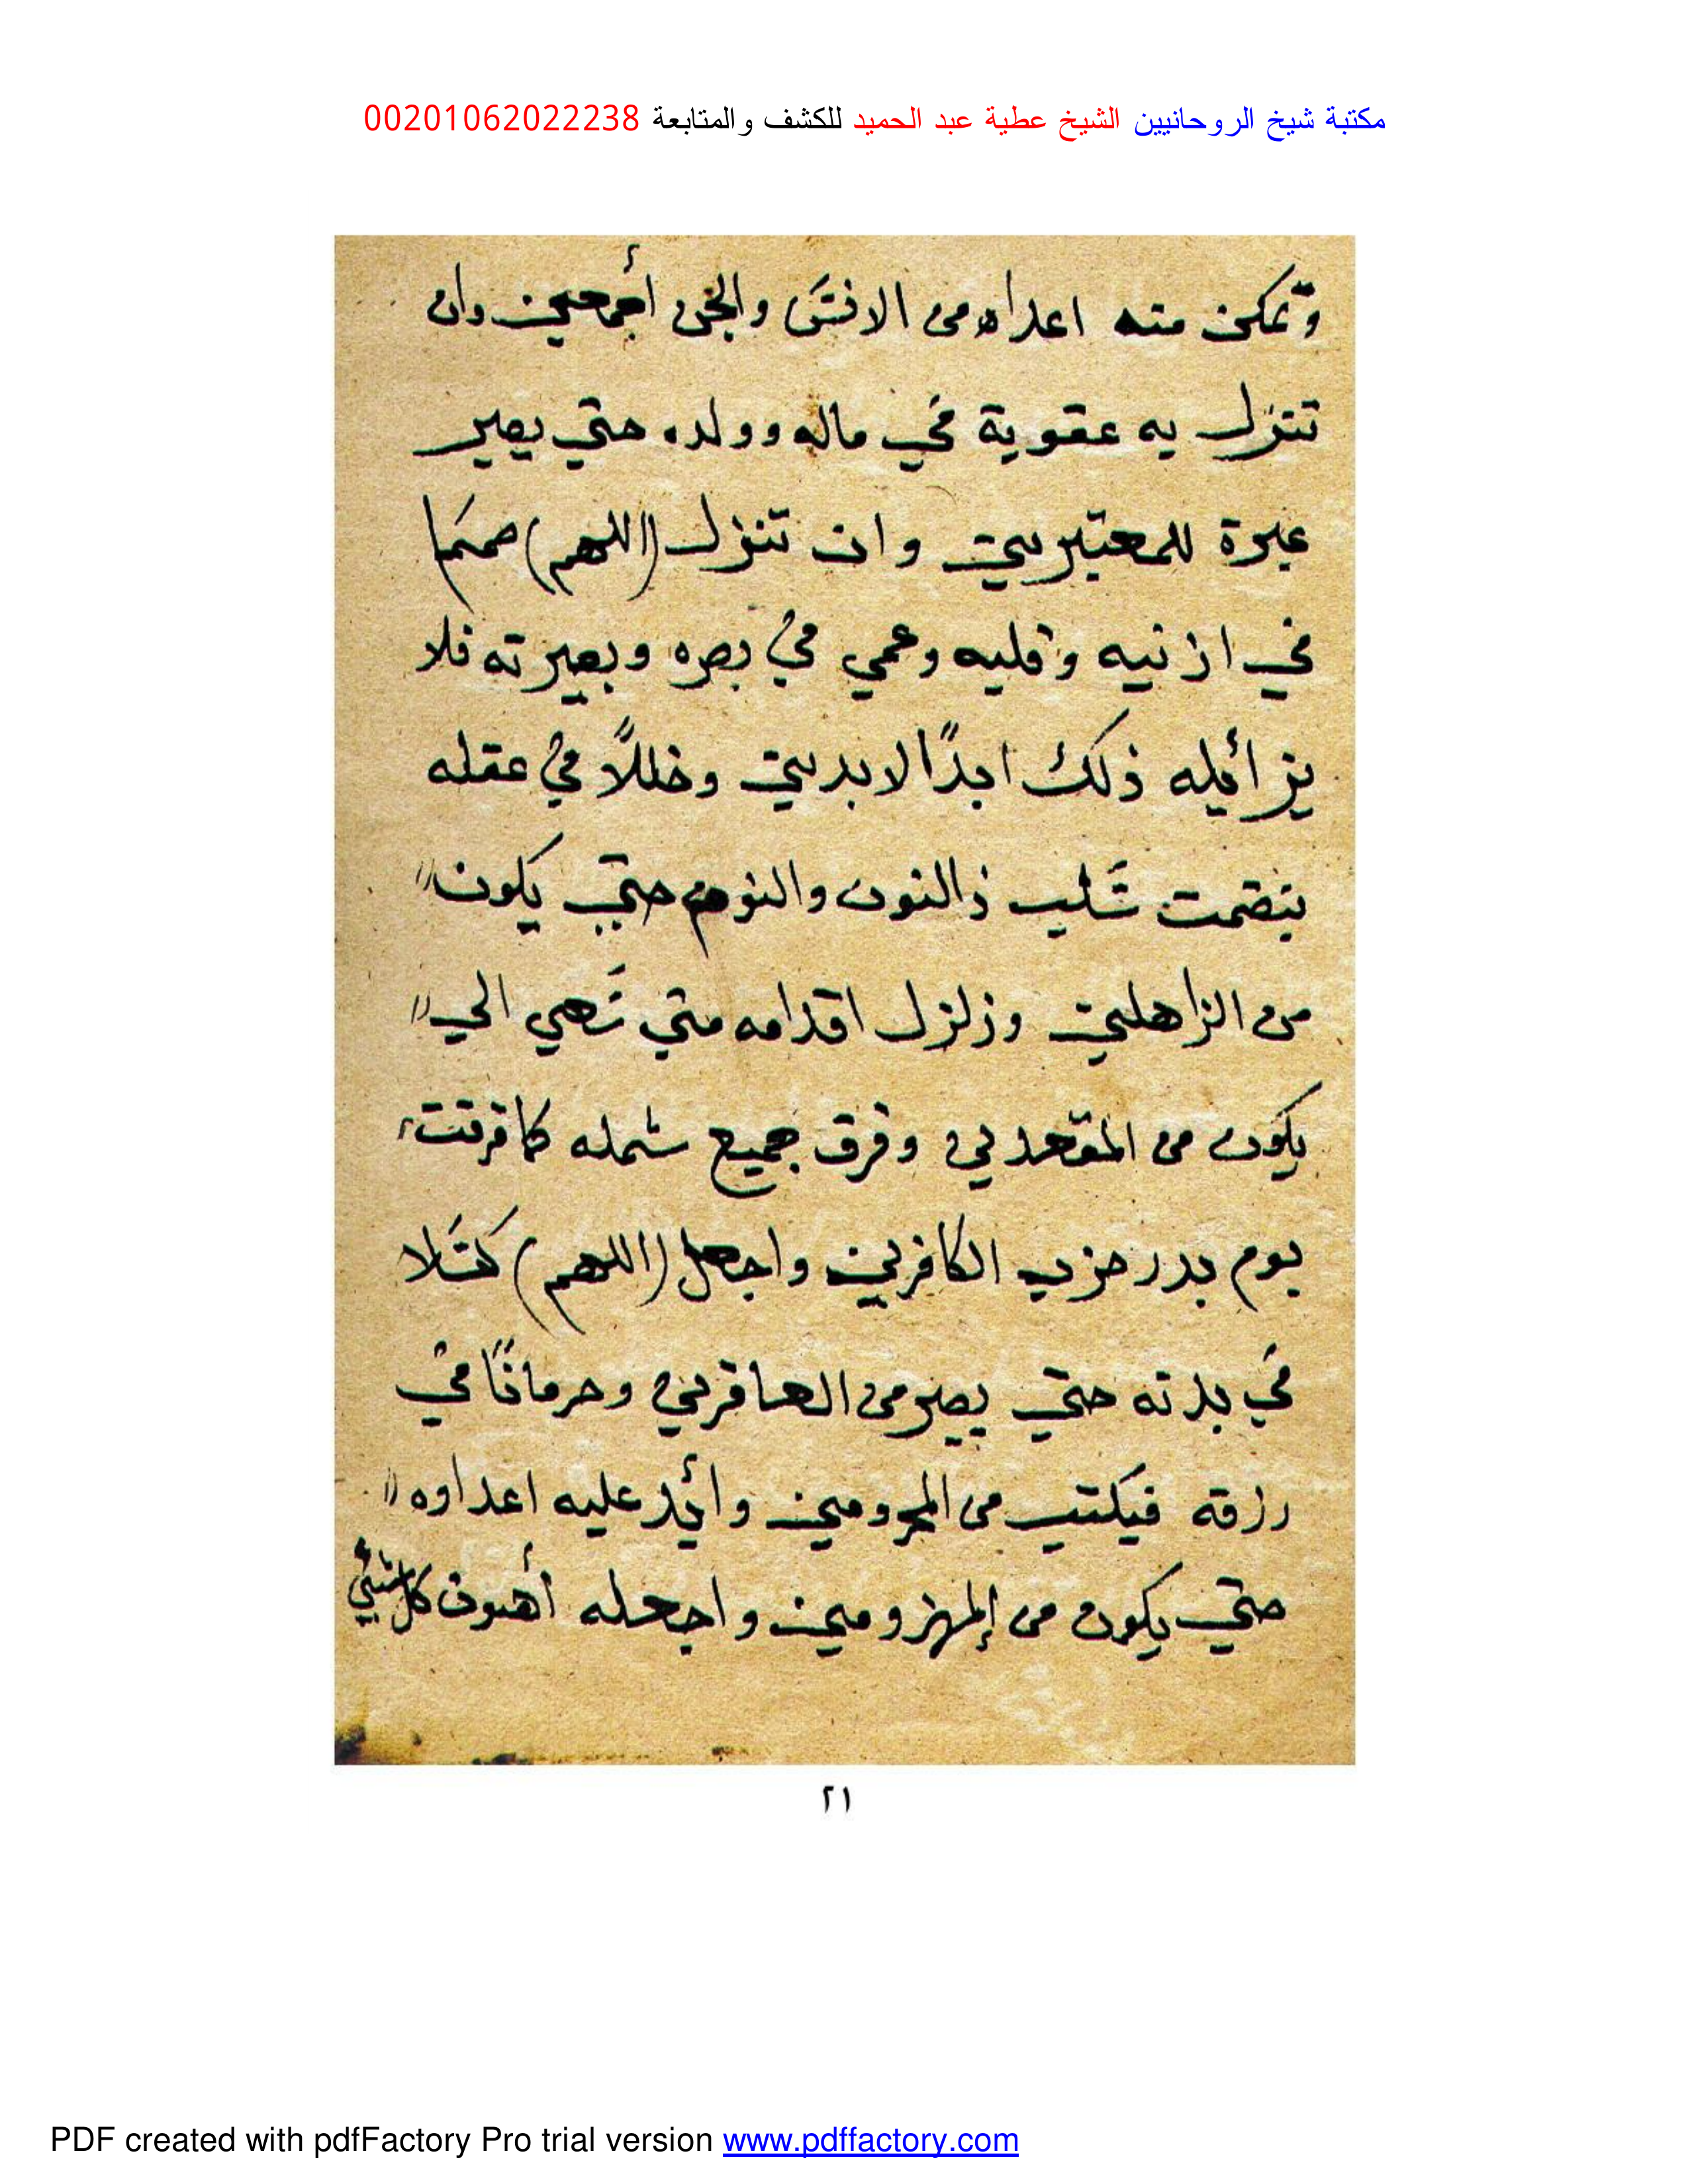 مكتبة شيخ الروحانيين الشيخ عطية عبد الحميد للكشف والمتابعة 00201062022238
وتمكن منه اعداه من الانس والجن أجمعين وان
تنزل به عقوبة في ماله وولده حتي يصير
عبرة للمعتبرين وان تنزل (اللهم) صمما
في اذنيه وقلبه وعمي في بصره وبصيرته فلا
يزائيله ذلك ابدًا لابدين وخللاً في عقله
ذالنون والنوم حتي يكون
من الزاهلين وزلزل اقدامه متي الي
يكون من المقعدين وفرق جميع شمله كا فرقت
يوم بدر حزب الكافرين واجعل (اللهم) كسلا
في بدنه حتي يصير من العاقرين وحرمانًا في
رزقه فيكتب من المحرومين وأيد عليه اعداوه
حتي يكون من المهزومين واجعله أهون كل شيئ
٢١
PDF created with pdfFactory Pro trial version www.pdffactory.com